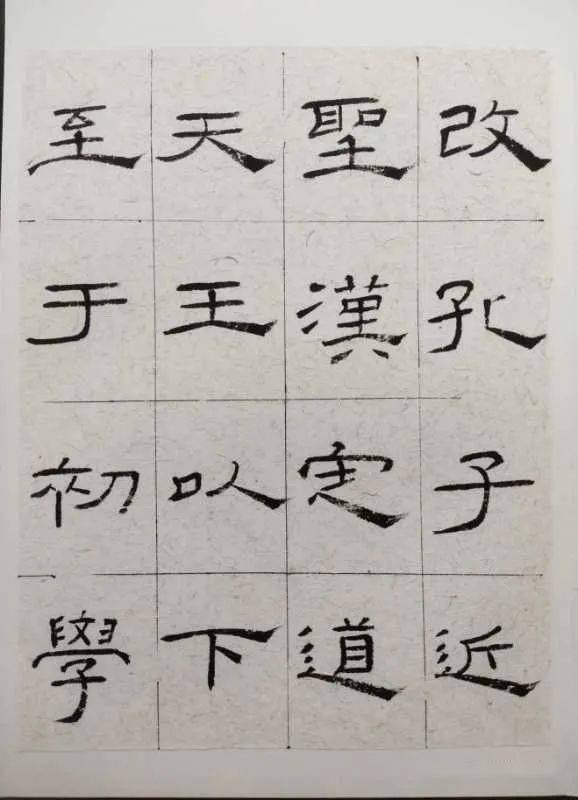 改孔子近
聖漢定道
天王以下
至于初學